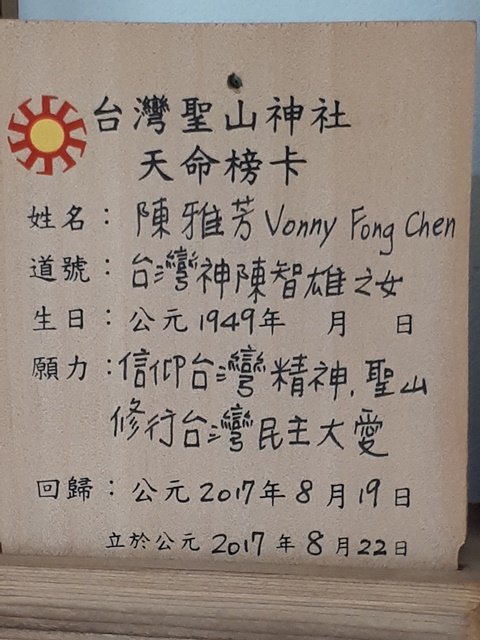 台灣聖山神社
天命榜卡
姓名：陳雅芳 Vonny Fong Chen
道號：台灣神陳智雄之女
生日：公元1949年　月　日
願力：信仰台灣精神，聖山
修行台灣民主大愛
回歸：公元2017年8月19日
立於公元2017年8月22日